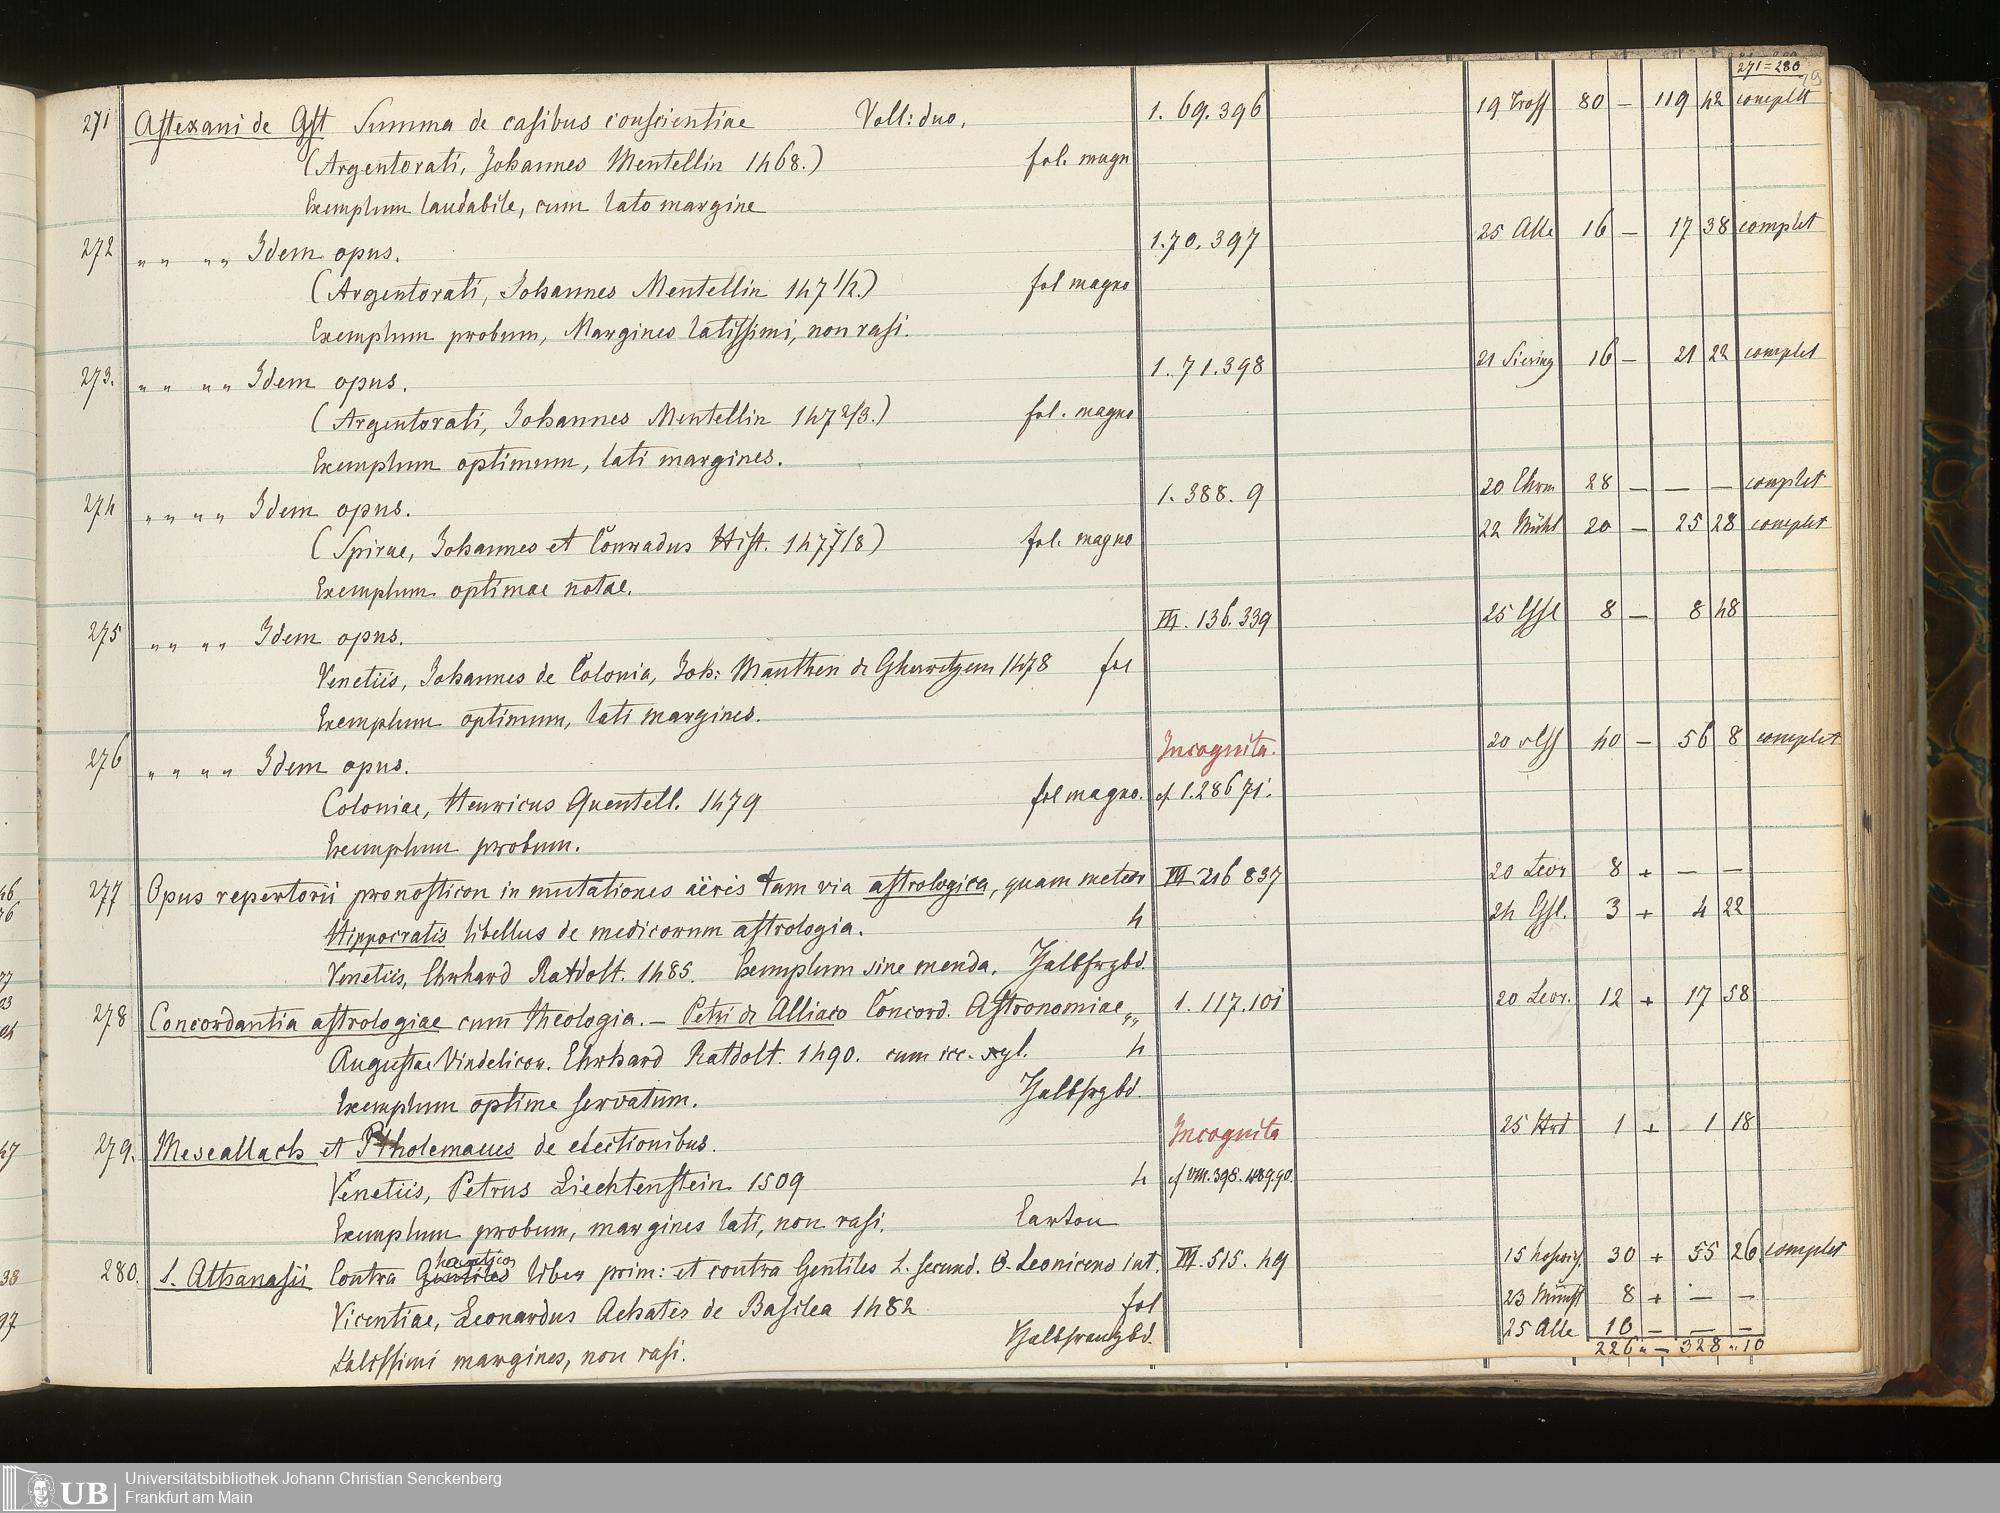 271=280
271 Astexani de Ast Summa de casibus conscientiae Voll: duo, 1. 69. 396 19 Tross 80 – 119 42 complet
(Argentorati, Johannes Mentellin 1468.) fol. magn
Exemplum laudabile, cum lato margine
272 " " " " Idem opus. 1.70.397 25 Alle 16 – 17 38 complet
(Argentorati, Johannes Mentellin 1471/2.) fol magno
Exemplum probum, Margines latissimi, non rasi.
273. " " " " Idem opus. 1. 71.398 21 Siering 16 – 21 22 complet
(Argentorati, Johannes Mentellin 1472/3.) fol. magno
Exemplum optimum, lati margines.
274 " " " " Idem opus. 1. 388. 9 20 Ehrm 28 – – – complet
(Spirae, Johannes et Conradus Hist. 1477/8) fol. magno 22 Mühl 20 – 25 28 complet
Exemplum optimae notae.
275 " " " " Idem opus. III. 136.339 25 Gsl 8 – 8 48
Venetiis, Johannes de Colonia, Joh: Manthen de Gherretzem 1478 fol
Exemplum optimum, lati margines.
276 " " " " Idem opus. Incognita. 20 40 – 56 8 complet
Coloniae, Henricus Quentell. 1479 fol magno. cf. 1.28671.
Exemplum probum.
277 Opus repertorii pronosticon in mutationes aëris tam via astrologica, quam meteor III 216 837 20 Leor 8 + – –
Hippocratis libellus de medicorum astrologia. 4 24 Gsl. 3 + 4 22
Venetiis, Ehrhard Ratdolt. 1485. Exemplum sine menda. Halbfrzbd.
278 Concordantia astrologiae cum theologia. – Petri de Alliaco Concord. Astronomiae " 1. 117.101 20 Leor. 12 + 17 58
Augustae Vindelicor. Ehrhard Ratdolt. 1490. cum icc. xyl. 4
Exemplum optime servatum. Halbfrzbd.
279. Meseallach et Ptholemaeus de electionibus. Incognita 25 Hrd 1 + 1 18
Venetiis, Petrus Liechtenstein 1509 4 cf VIII. 398. 489.90.
Exemplum probum, margines lati, non rasi. Carton
280. S. Athanasii Contra Gentiles haereticos liber prim: et contra Gentiles L. secund. O. Leoniceno int. III. 515. 49 15 30 + 55 26 complet
Vicentiae, Leonardus Achates de Basilea 1482 fol 23 Münst 8 + – –
Latissimi margines, non rasi. Halbfranzbd. 25 Alle 10 – – –
226 " – 328 " 10
Universitätsbibliothek Johann Christian Senckenberg
UB Frankfurt am Main